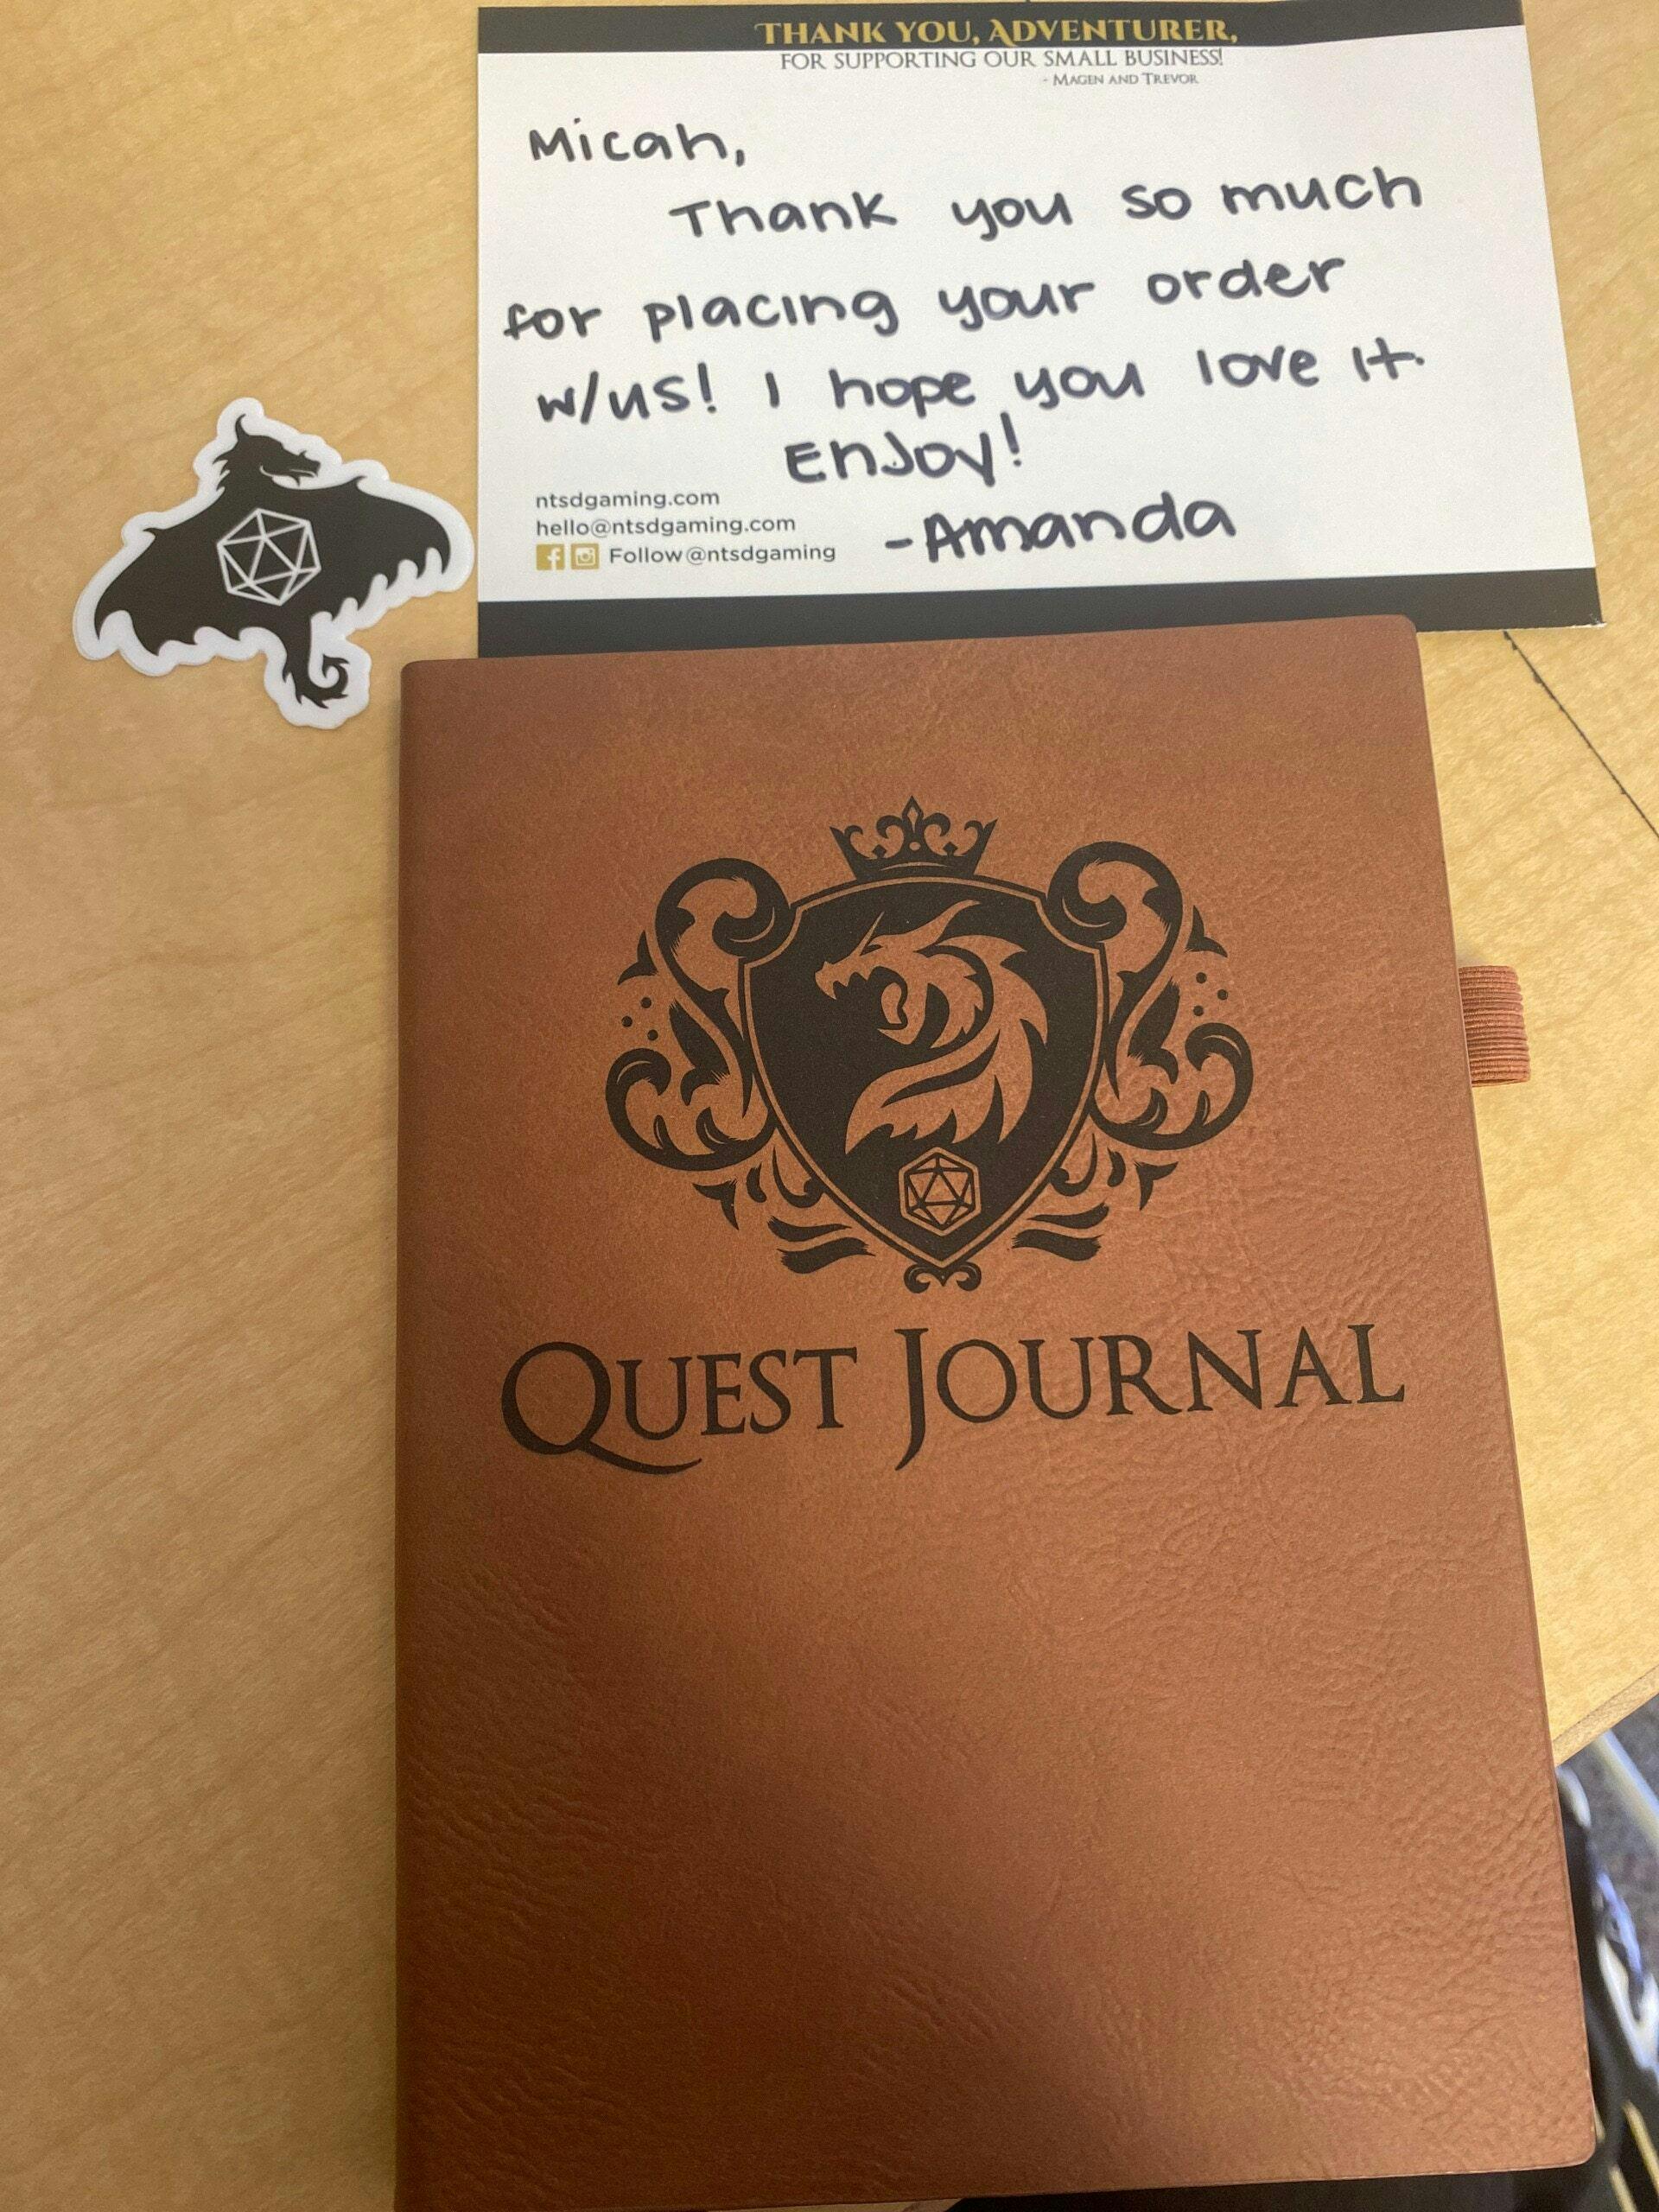 THANK YOU, ADVENTURER,
FOR SUPPORTING OUR SMALL BUSINESS!
- MAGEN AND TREVOR
Micah,
Thank you so much
for placing your order
w/us! I hope you love it.
Enjoy!
-Amanda
ntsdgaming.com
hello@ntsdgaming.com
Follow @ntsdgaming
QUEST JOURNAL